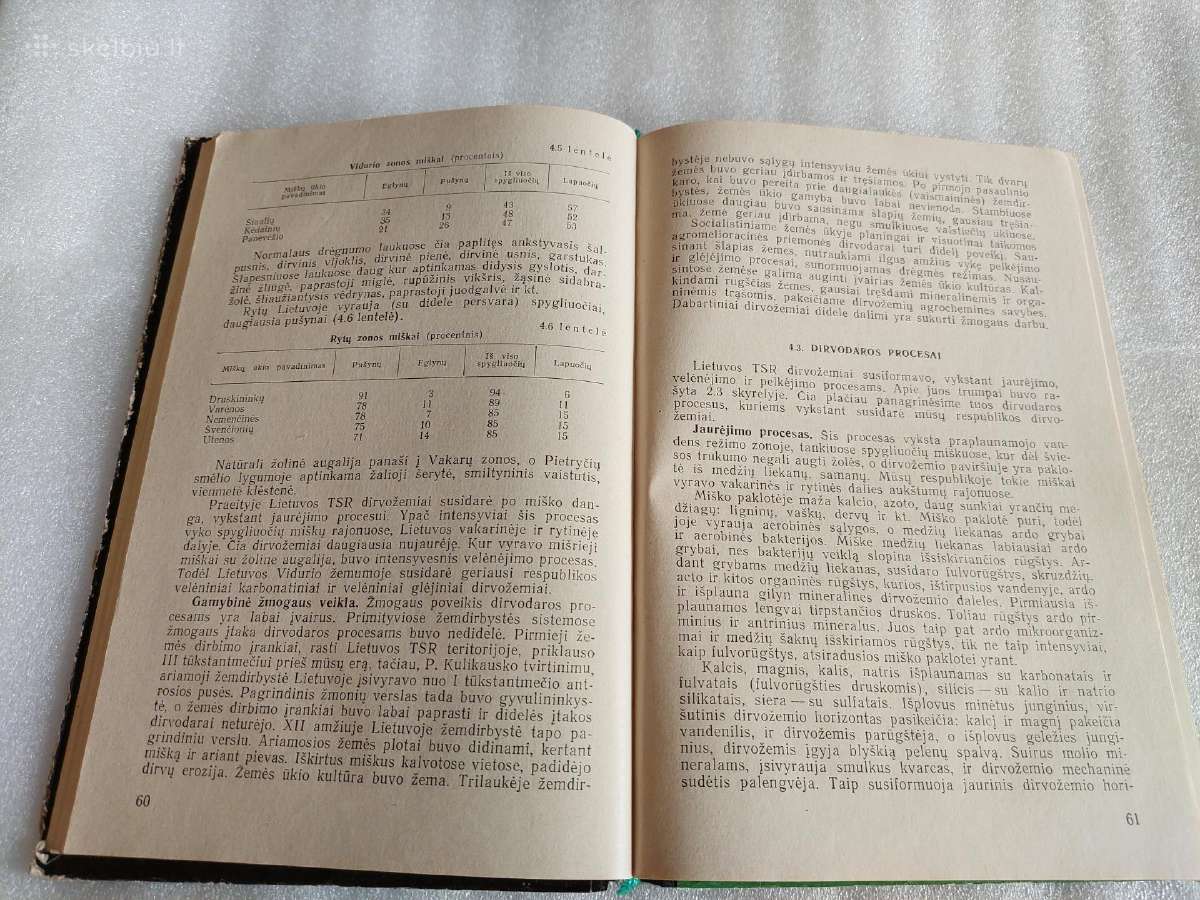 skelbiu.lt
4.5 lentelė
Vidurio zonos miškai (procentais)
Miškų ūkio pavadinimas | Eglynų | Pušynų | Iš viso spygliuočių | Lapuočių
Šiaulių 34 9 43 57
Kėdainių 35 13 48 52
Panevėžio 21 26 47 53
Normalaus drėgnumo laukuose čia paplitęs ankstyvasis šal-
pusnis, dirvinis vijoklis, dirvinė pienė, dirvinė usnis, garstukas.
Šlapesniuose laukuose daug kur aptinkamas didysis gyslotis, dar-
žinė žliūgė, paprastoji miglė, rupūžinis vikšris, žąsinė sidabra-
žolė, šliaužiantysis vėdrynas, paprastoji juodgalvė ir kt.
Rytų Lietuvoje vyrauja (su didele persvara) spygliuočiai,
daugiausia pušynai (4.6 lentelė).
4.6 lentelė
Rytų zonos miškai (procentais)
Miškų ūkio pavadinimas | Pušynų | Eglynų | Iš viso spygliuočių | Lapuočių
Druskininkų 91 3 94 6
Varėnos 78 11 89 11
Nemenčinės 78 7 85 15
Švenčionių 75 10 85 15
Utenos 71 14 85 15
Natūrali žolinė augalija panaši į Vakarų zonos, o Pietryčių
smėlio lygumoje aptinkama žalioji šerytė, smiltyninis vaistutis,
vienmetė klėstenė.
Praeityje Lietuvos TSR dirvožemiai susidarė po miško dan-
ga, vykstant jaurėjimo procesui. Ypač intensyviai šis procesas
vyko spygliuočių miškų rajonuose, Lietuvos vakarinėje ir rytinėje
dalyje. Čia dirvožemiai daugiausia nujaurėję. Kur vyravo mišrieji
miškai su žoline augalija, buvo intensyvesnis velėnėjimo procesas.
Todėl Lietuvos Vidurio žemumoje susidarė geriausi respublikos
velėniniai karbonatiniai ir velėniniai glėjiniai dirvožemiai.
Gamybinė žmogaus veikla. Žmogaus poveikis dirvodaros pro-
cesams yra labai įvairus. Primityviose žemdirbystės sistemose
žmogaus įtaka dirvodaros procesams buvo nedidelė. Pirmieji že-
mės dirbimo įrankiai, rasti Lietuvos TSR teritorijoje, priklauso
III tūkstantmečiui prieš mūsų erą, tačiau, P. Kulikausko tvirtinimu,
ariamoji žemdirbystė Lietuvoje įsivyravo nuo I tūkstantmečio ant-
rosios pusės. Pagrindinis žmonių verslas tada buvo gyvulininkys-
tė, o žemės dirbimo įrankiai buvo labai paprasti ir didelės įtakos
dirvodarai neturėjo. XII amžiuje Lietuvoje žemdirbystė tapo pa-
grindiniu verslu. Ariamosios žemės plotai buvo didinami, kertant
mišką ir ariant pievas. Iškirtus miškus kalvotose vietose, padidėjo
dirvų erozija. Žemės ūkio kultūra buvo žema. Trilaukėje žemdir-
60
bystėje nebuvo sąlygų intensyviau žemės ūkiui vystyti. Tik dvarų
žemės buvo geriau įdirbamos ir tręšiamos. Po pirmojo pasaulinio
karo, kai buvo pereita prie daugialaukės (vaismaininės) žemdir-
bystės, žemės ūkio gamyba buvo labai nevienoda. Stambiuose
ūkiuose daugiau buvo sausinama šlapių žemių, gausiau tręšia-
ma, žemė geriau įdirbama, negu smulkiuose valstiečių ūkiuose.
Socialistiniame žemės ūkyje planingai ir visuotinai taikomos
agromelioracinės priemonės dirvodarai turi didelį poveikį. Sau-
sinant šlapias žemes, nutraukiami ilgus amžius vykę pelkėjimo
ir glėjėjimo procesai, sunormuojamas drėgmės režimas. Nusau-
sintose žemėse galima auginti įvairias žemės ūkio kultūras. Kal-
kindami rūgščias žemes, gausiai tręšdami mineralinėmis ir orga-
ninėmis trąšomis, pakeičiame dirvožemių agrochemines savybes.
Dabartiniai dirvožemiai didele dalimi yra sukurti žmogaus darbu.
4.3. DIRVODAROS PROCESAI
Lietuvos TSR dirvožemiai susiformavo, vykstant jaurėjimo,
velėnėjimo ir pelkėjimo procesams. Apie juos trumpai buvo ra-
šyta 2.3 skyrelyje. Čia plačiau panagrinėsime tuos dirvodaros
procesus, kuriems vykstant susidarė mūsų respublikos dirvo-
žemiai.
Jaurėjimo procesas. Šis procesas vyksta praplaunamojo van-
dens režimo zonoje, tankiuose spygliuočių miškuose, kur dėl švie-
sos trūkumo negali augti žolės, o dirvožemio paviršiuje yra paklo-
tė iš medžių liekanų, samanų. Mūsų respublikoje tokie miškai
vyravo vakarinės ir rytinės dalies aukštumų rajonuose.
Miško paklotėje maža kalcio, azoto, daug sunkiai yrančių me-
džiagų: ligninų, vaškų, dervų ir kt. Miško paklotė puri, todėl
joje vyrauja aerobinės sąlygos, o medžių liekanas ardo grybai
ir aerobinės bakterijos. Miške medžių liekanas labiausiai ardo
grybai, nes bakterijų veiklą slopina išsiskiriančios rūgštys. Ar-
dant grybams medžių liekanas, susidaro fulvorūgštys, skruzdžių,
acto ir kitos organinės rūgštys, kurios, ištirpusios vandenyje, ardo
ir išplauna gilyn mineralines dirvožemio daleles. Pirmiausia iš-
plaunamos lengvai tirpstančios druskos. Toliau rūgštys ardo pir-
minius ir antrinius mineralus. Juos taip pat ardo mikroorganiz-
mai ir medžių šaknų išskiriamos rūgštys, tik ne taip intensyviai,
kaip fulvorūgštys, atsiradusios miško paklotei yrant.
Kalcis, magnis, kalis, natris išplaunamas su karbonatais ir
fulvatais (fulvorūgšties druskomis), silicis — su kalio ir natrio
silikatais, siera — su sulfatais. Išplovus minėtus junginius, vir-
šutinis dirvožemio horizontas pasikeičia: kalcį ir magnį pakeičia
vandenilis, ir dirvožemis parūgštėja, o išplovus geležies jungi-
nius, dirvožemis įgyja blyškią pelenų spalvą. Suirus molio mi-
neralams, įsivyrauja smulkus kvarcas, ir dirvožemio mechaninė
sudėtis palengvėja. Taip susiformuoja jaurinis dirvožemio hori-
61